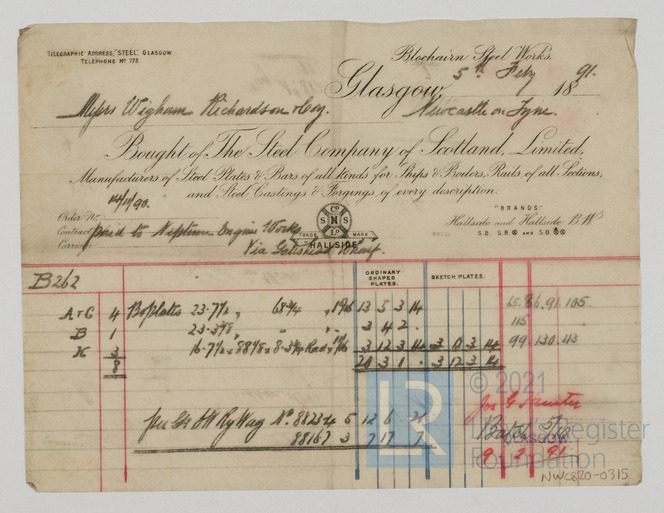 TELEGRAPHIC ADDRESS, "STEEL" GLASGOW
TELEPHONE Nº 773
Blochairn Steel Works.
Glasgow 5th Feby 1891.
Messrs Wigham Richardson & Coy. Newcastle on Tyne.
Bought of The Steel Company of Scotland, Limited,
Manufacturers of Steel Plates & Bars of all kinds for Ships & Boilers, Rails of all Sections,
and Steel Castings & Forgings of every description.
14/11/90.
"BRANDS"
Order Nº
Hallside and Hallside B.
Contract
Carriage paid to Neptune Engine Works
S.B. S.B. AND S.B.
Cº
S S
Lº
TRADE MARK
"HALLSIDE"
Via Gateshead Wharf.
B262
ORDINARY SHAPED PLATES.
SKETCH PLATES.
A & C 4 Bo plates 23.7½ 68¾ 13 5 3 14 65.86.91.105.
B 1 23. 3 4 2 . 115
K 3 3 12 3 14 3 12 3 14 99 130.113
8 20 3 1 . 3 12 3 14
Ry Wag Nº 88234 12 6
88167 7 17
9 2 91
© 2021
LR
Lloyd's Register
Foundation
NWC820-0315